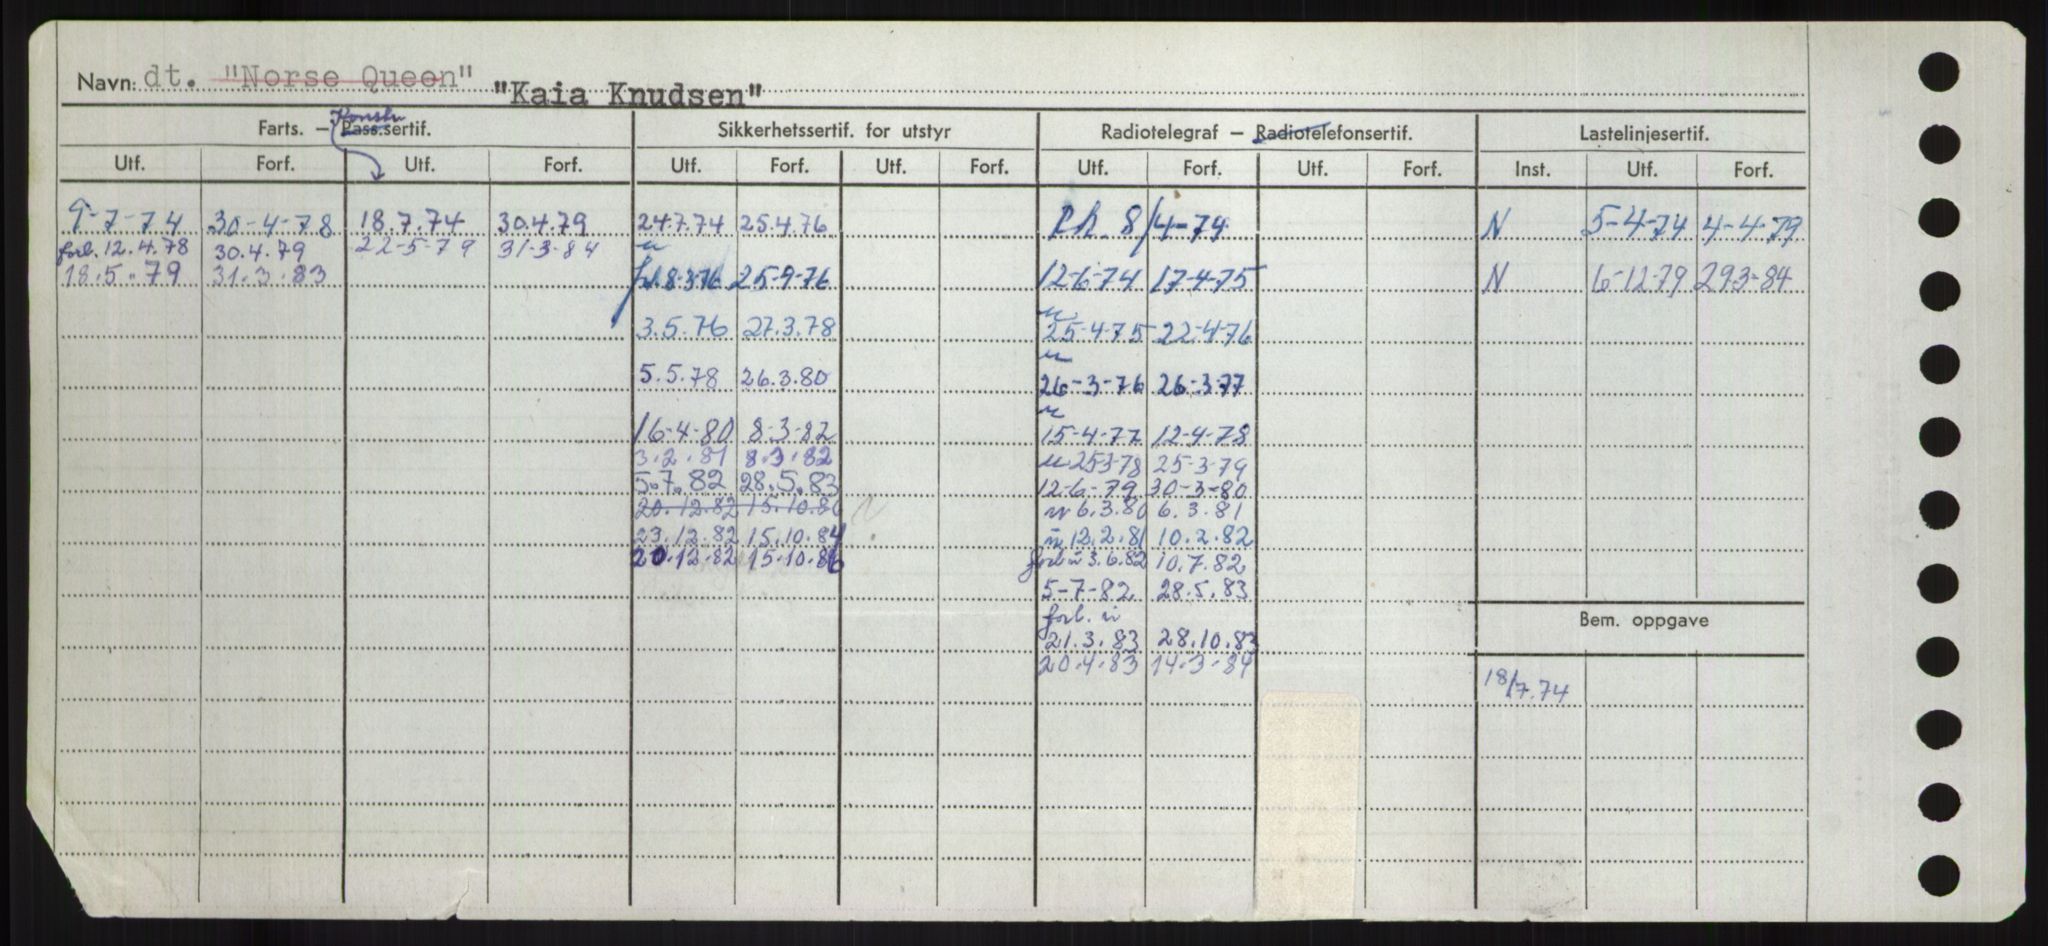 Navn: dt. "Norse Queen" "Kaia Knudsen"
Konstr
Farts. — Pass.sertif. Sikkerhetssertif. for utstyr Radiotelegraf — Radiotelefonsertif. Lastelinjesertif.
Utf. Forf. Utf. Forf. Utf. Forf. Utf. Forf. Utf. Forf. Utf. Forf. Inst. Utf. Forf.
9-7-74 30-4-78 18.7.74 30.4.79 24.7.74 25.4.76 8/4-74 N 5-4-74 4-4-79
forl. 12.4.78 30.4.79 22-5-79 31-3-84
18.5.79 31.3.83 8-3-76 25-9-76 12-6-74 17-4-75 N 6-12-79 29.3-84
3.5.76 27.3.78 25-4-75 22-4-76
5.5.78 26.3.80 26-3-76 26-3-77
16-4-80 8-3-82 15-4-77 12-4-78
3.2.81 8.3.82 25.3.78 25-3-79
5.7.82 28.5.83 12-6-79 30-3-80
20.12.82 15.10.86 6.3.80 6.3.81
23.12.82 15.10.84 12.2.81 10.2.82
20.12.82 15.10.86 3.6.82 10.7.82
5-7-82 28.5.83
forl.
21.3.83 28.10.83
20.4.83 14.3.84
Bem. oppgave
18/7.74